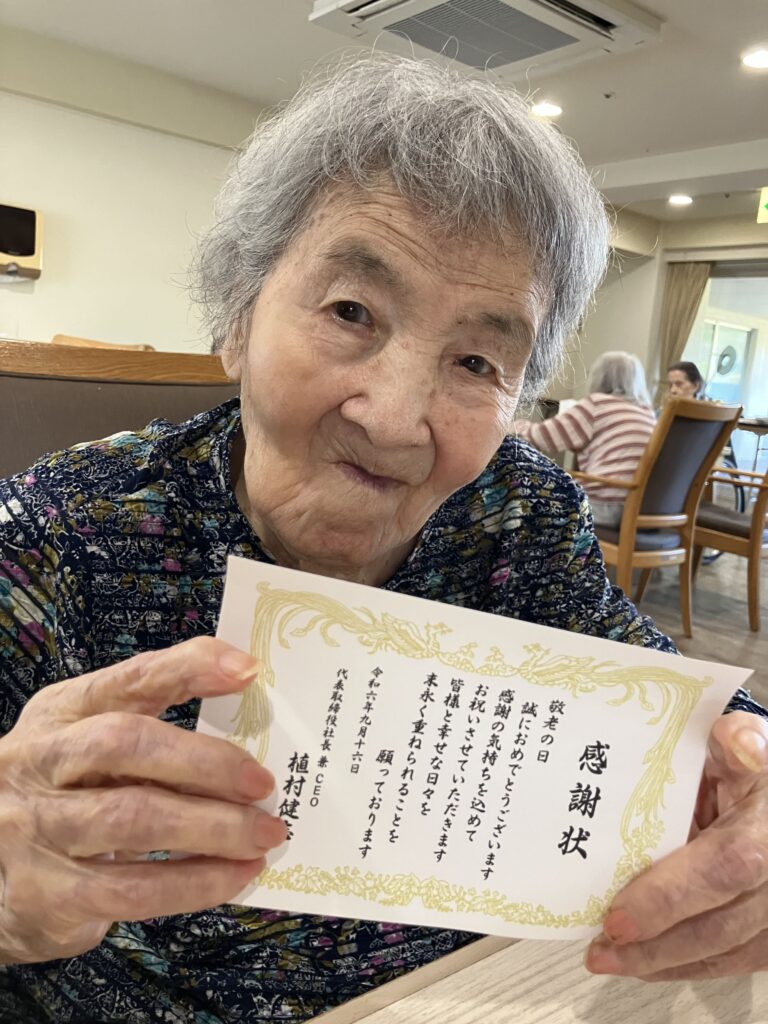 感謝状
敬老の日
誠におめでとうございます
感謝の気持ちを込めて
お祝いさせていただきます
皆様と幸せな日々を
末永く重ねられることを
願っております
令和六年九月十六日
代表取締役社長 兼 CEO
植村健